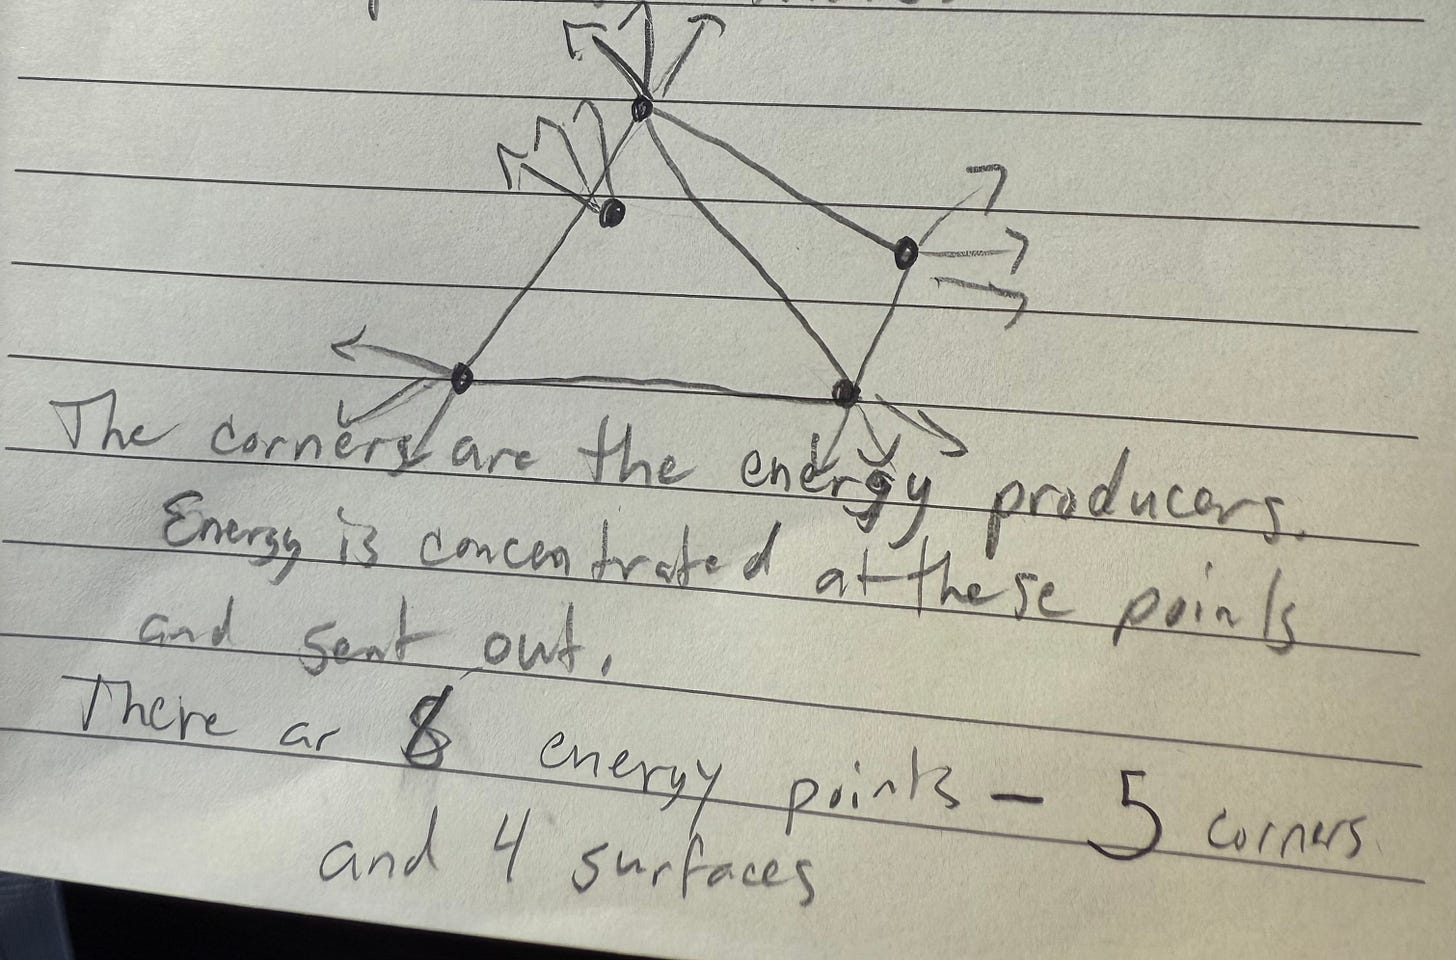 The corners are the energy producers.
Energy is concentrated at these points
and sent out.
There ar 8 energy points – 5 corners
and 4 surfaces